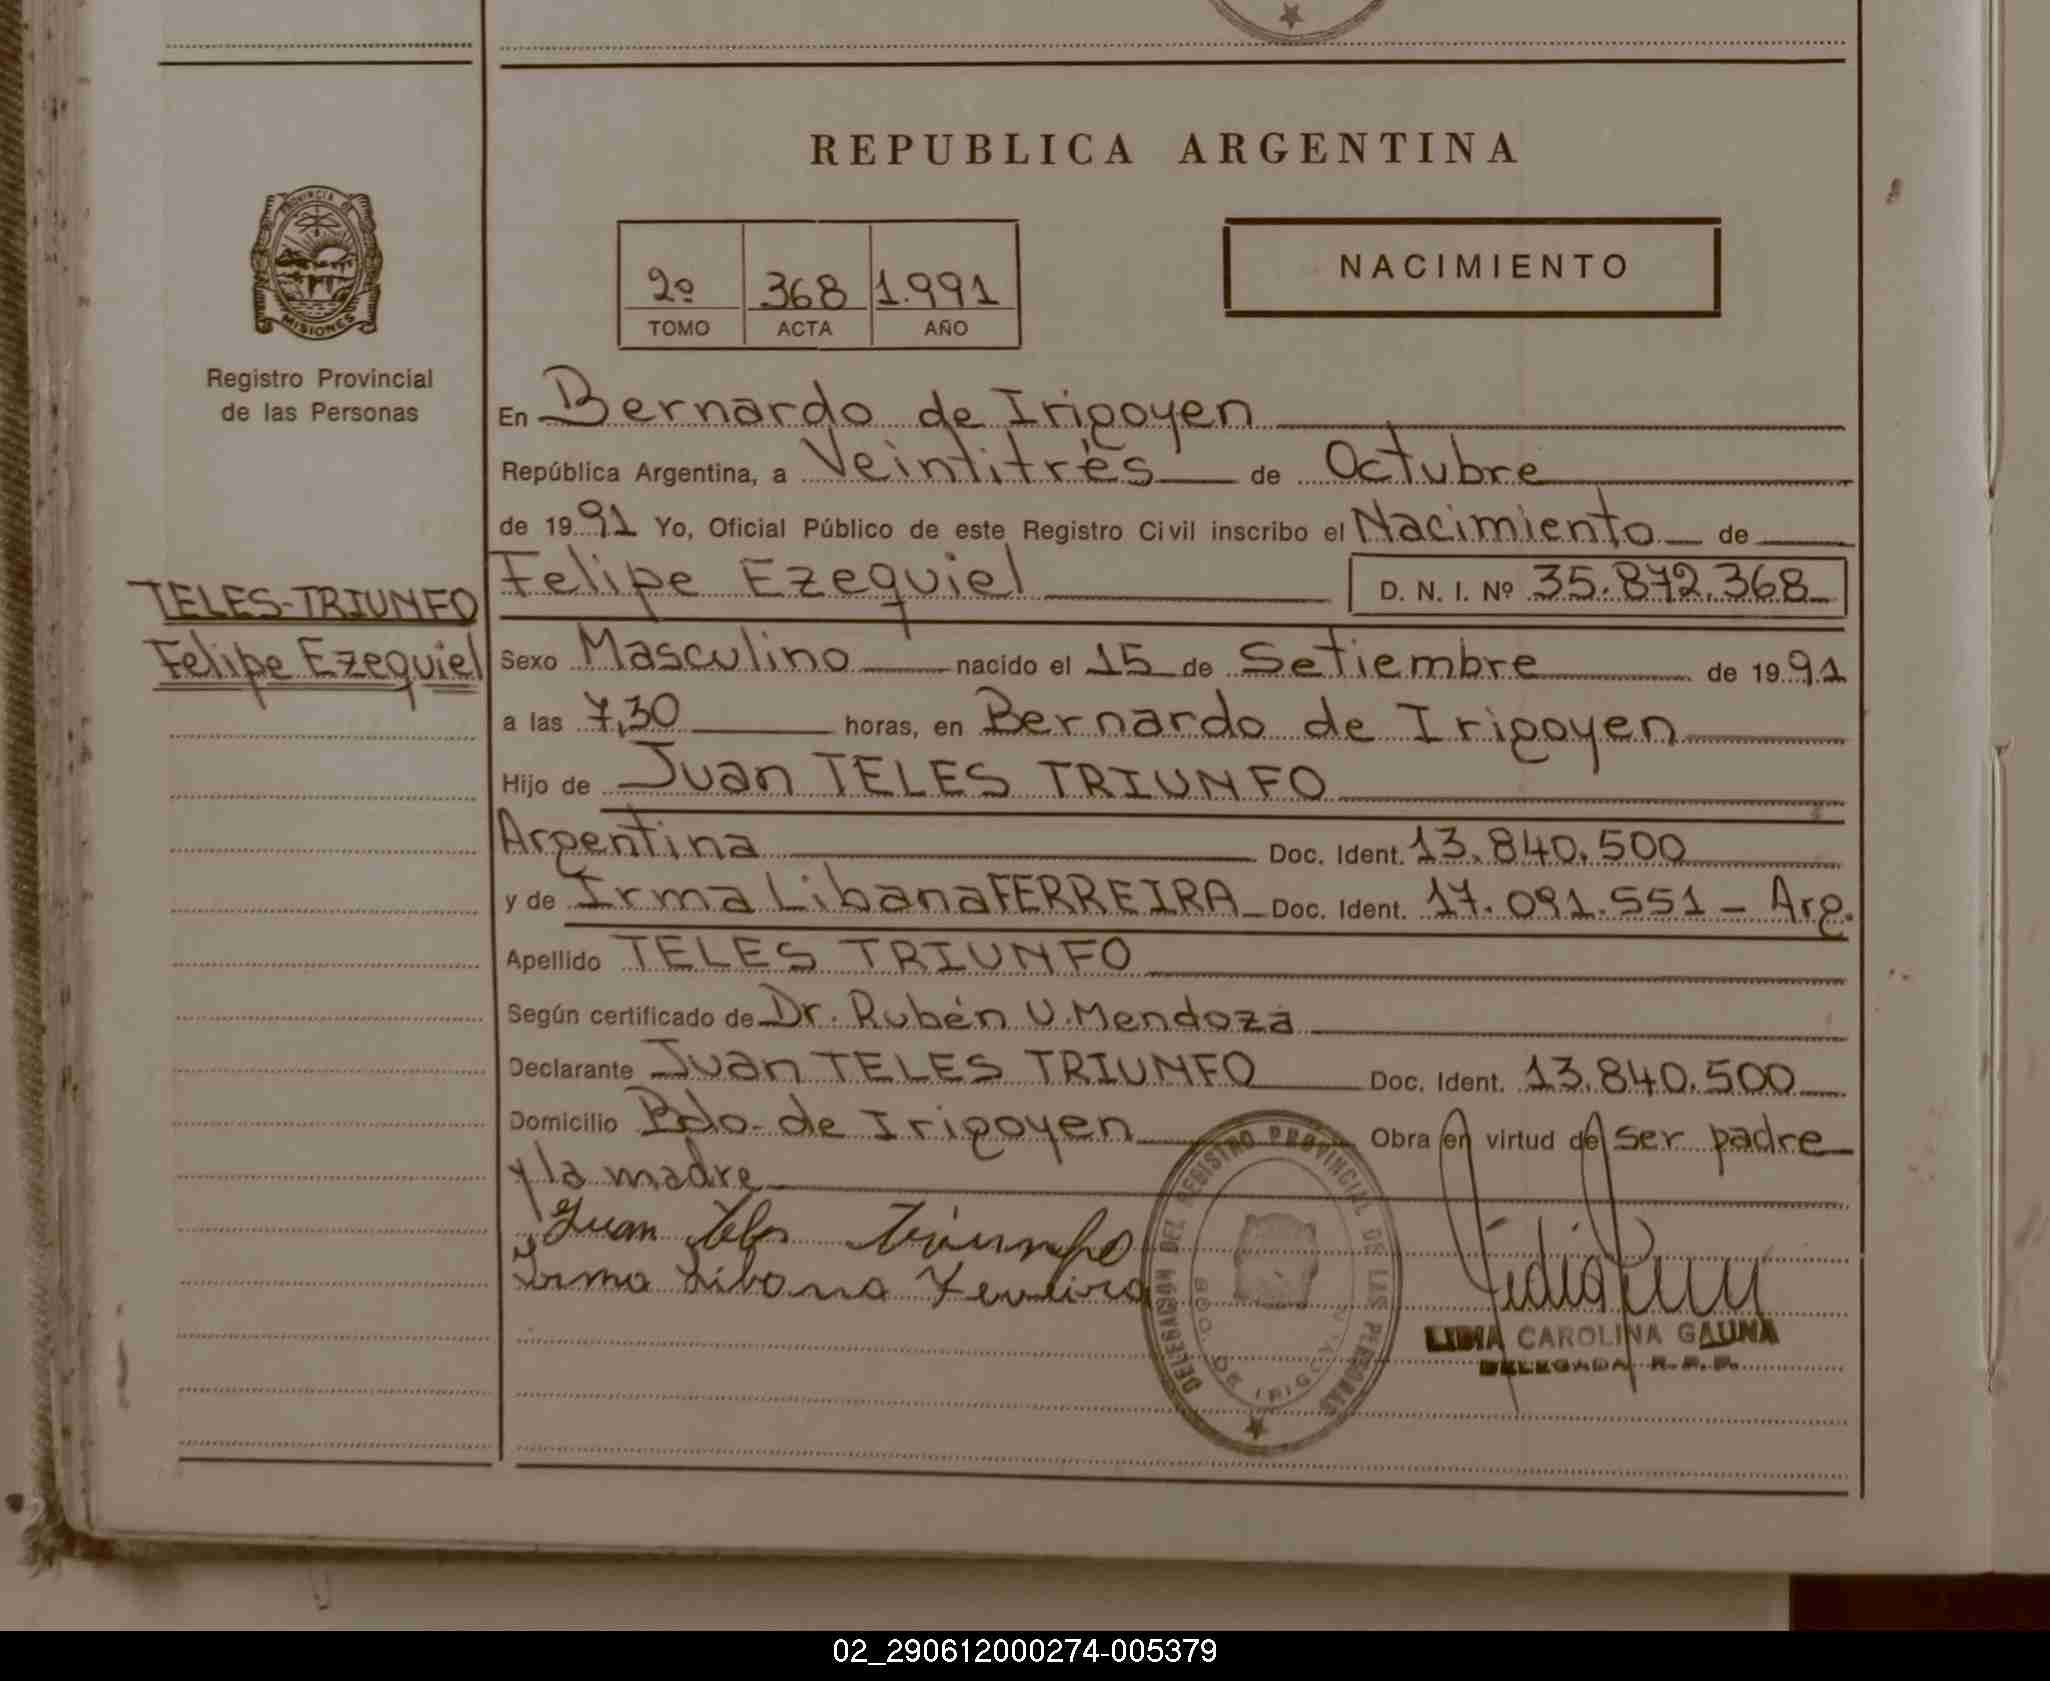 REPUBLICA ARGENTINA
PROVINCIA DE
MISIONES
Registro Provincial
de las Personas
2º 368 1.991
TOMO ACTA AÑO
NACIMIENTO
En Bernardo de Irigoyen
República Argentina, a Veintitrés de Octubre
de 1991 Yo, Oficial Público de este Registro Civil inscribo el Nacimiento de
TELES-TRIUNFO
Felipe Ezequiel
Felipe Ezequiel D. N. I. Nº 35.872.368
Sexo Masculino nacido el 15 de Setiembre de 1991
a las 7,30 horas, en Bernardo de Irigoyen
Hijo de Juan TELES TRIUNFO
Argentina Doc. Ident. 13.840.500
y de Irma Libana FERREIRA Doc. Ident. 17.091.551 - Arg.
Apellido TELES TRIUNFO
Según certificado de Dr. Rubén U. Mendoza
Declarante Juan TELES TRIUNFO Doc. Ident. 13.840.500
Domicilio Bdo. de Irigoyen Obra en virtud de ser padre
y la madre
Juan Teles Triunfo
Irma Libana Ferreira
DELEGACION DEL REGISTRO PROVINCIAL DE LAS PERSONAS
BDO. DE IRIGOYEN
LIDIA CAROLINA GAUNA
DELEGADA R. P. P.
02_290612000274-005379